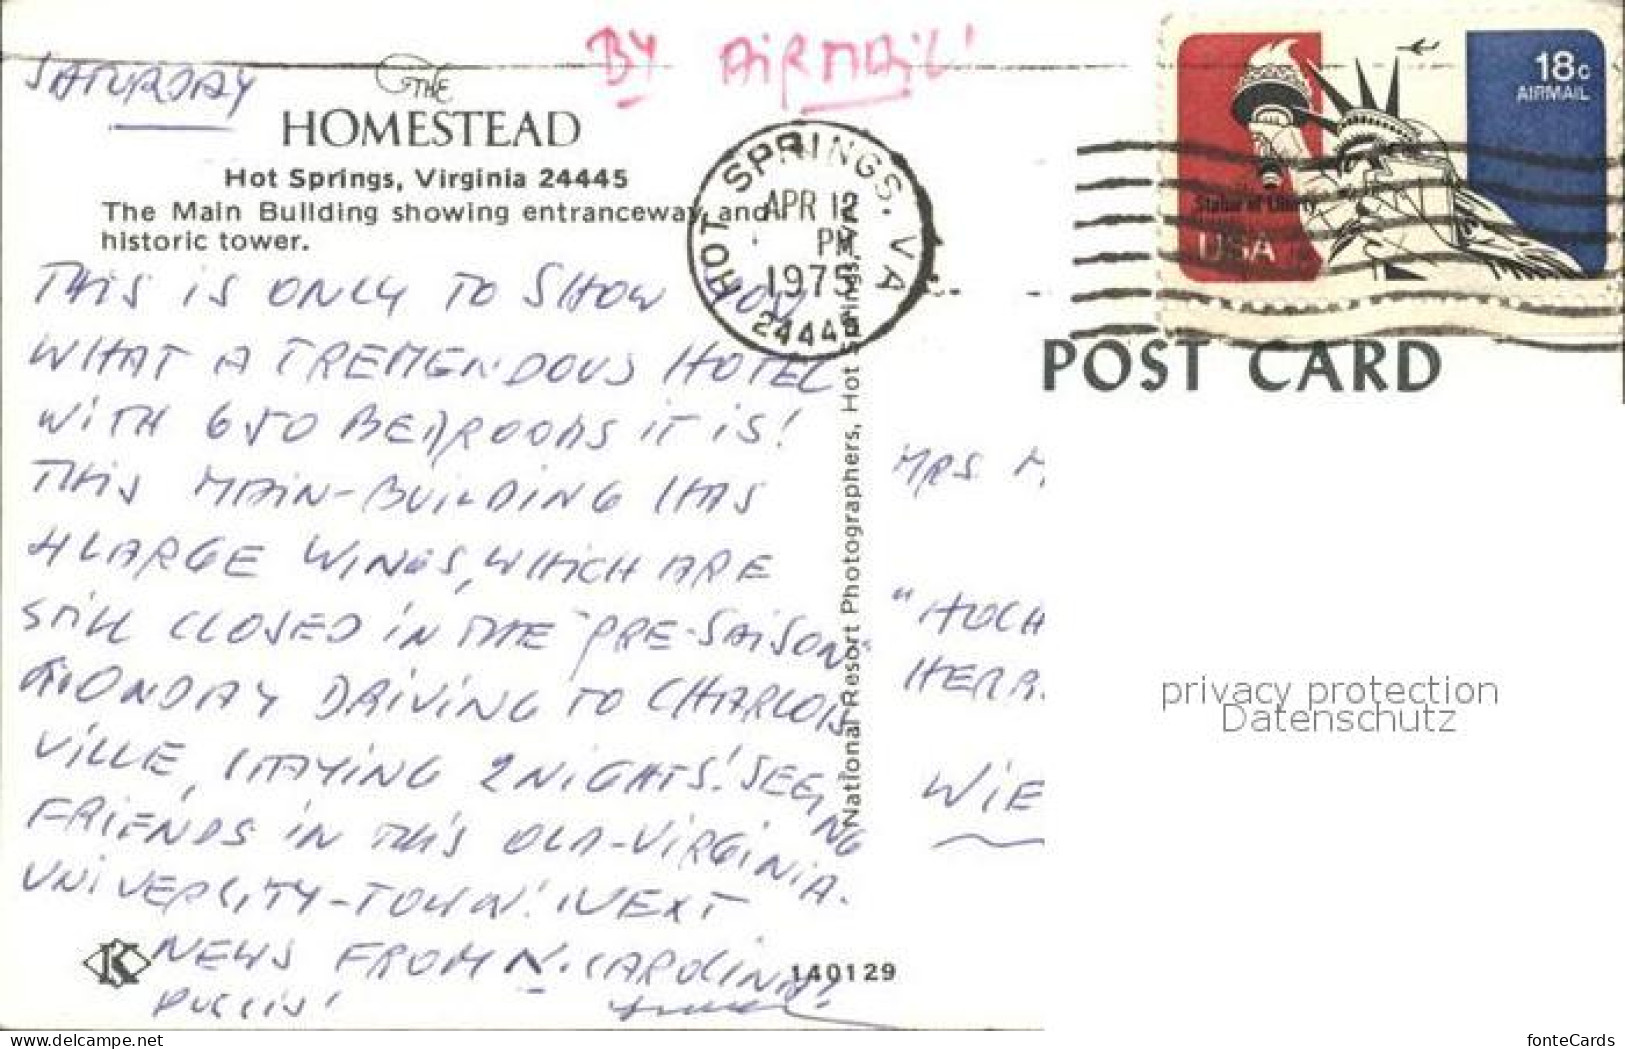 BY AIRMAIL!
SATURDAY
THE
HOMESTEAD
Hot Springs, Virginia 24445
The Main Building showing entranceway and
historic tower.
THIS IS ONLY TO SHOW YOU
WHAT A TREMENDOUS HOTEL
WITH 650 BEDROOMS IT IS!
THIS MAIN-BUILDING HAS
4 LARGE WINGS, WHICH ARE
STILL CLOSED IN THE "PRE-SAISON"
MONDAY DRIVING TO CHARLOTS
VILLE, STAYING 2 NIGHTS! SEEING
FRIENDS IN THIS OLD-VIRGINIA.
UNIVERSITY-TOWN! NEXT
NEWS FROM N. CAROLINA!
K
140129
HOT SPRINGS. VA
APR 12
PM
1975
24445
National Resort Photographers, Hot Springs, VA
18c
AIRMAIL
Statue of Liberty
USA
POST CARD
MRS M
"HOCH
HERR.
WIE
privacy protection
Datenschutz
www.delcampe.net
fonteCards